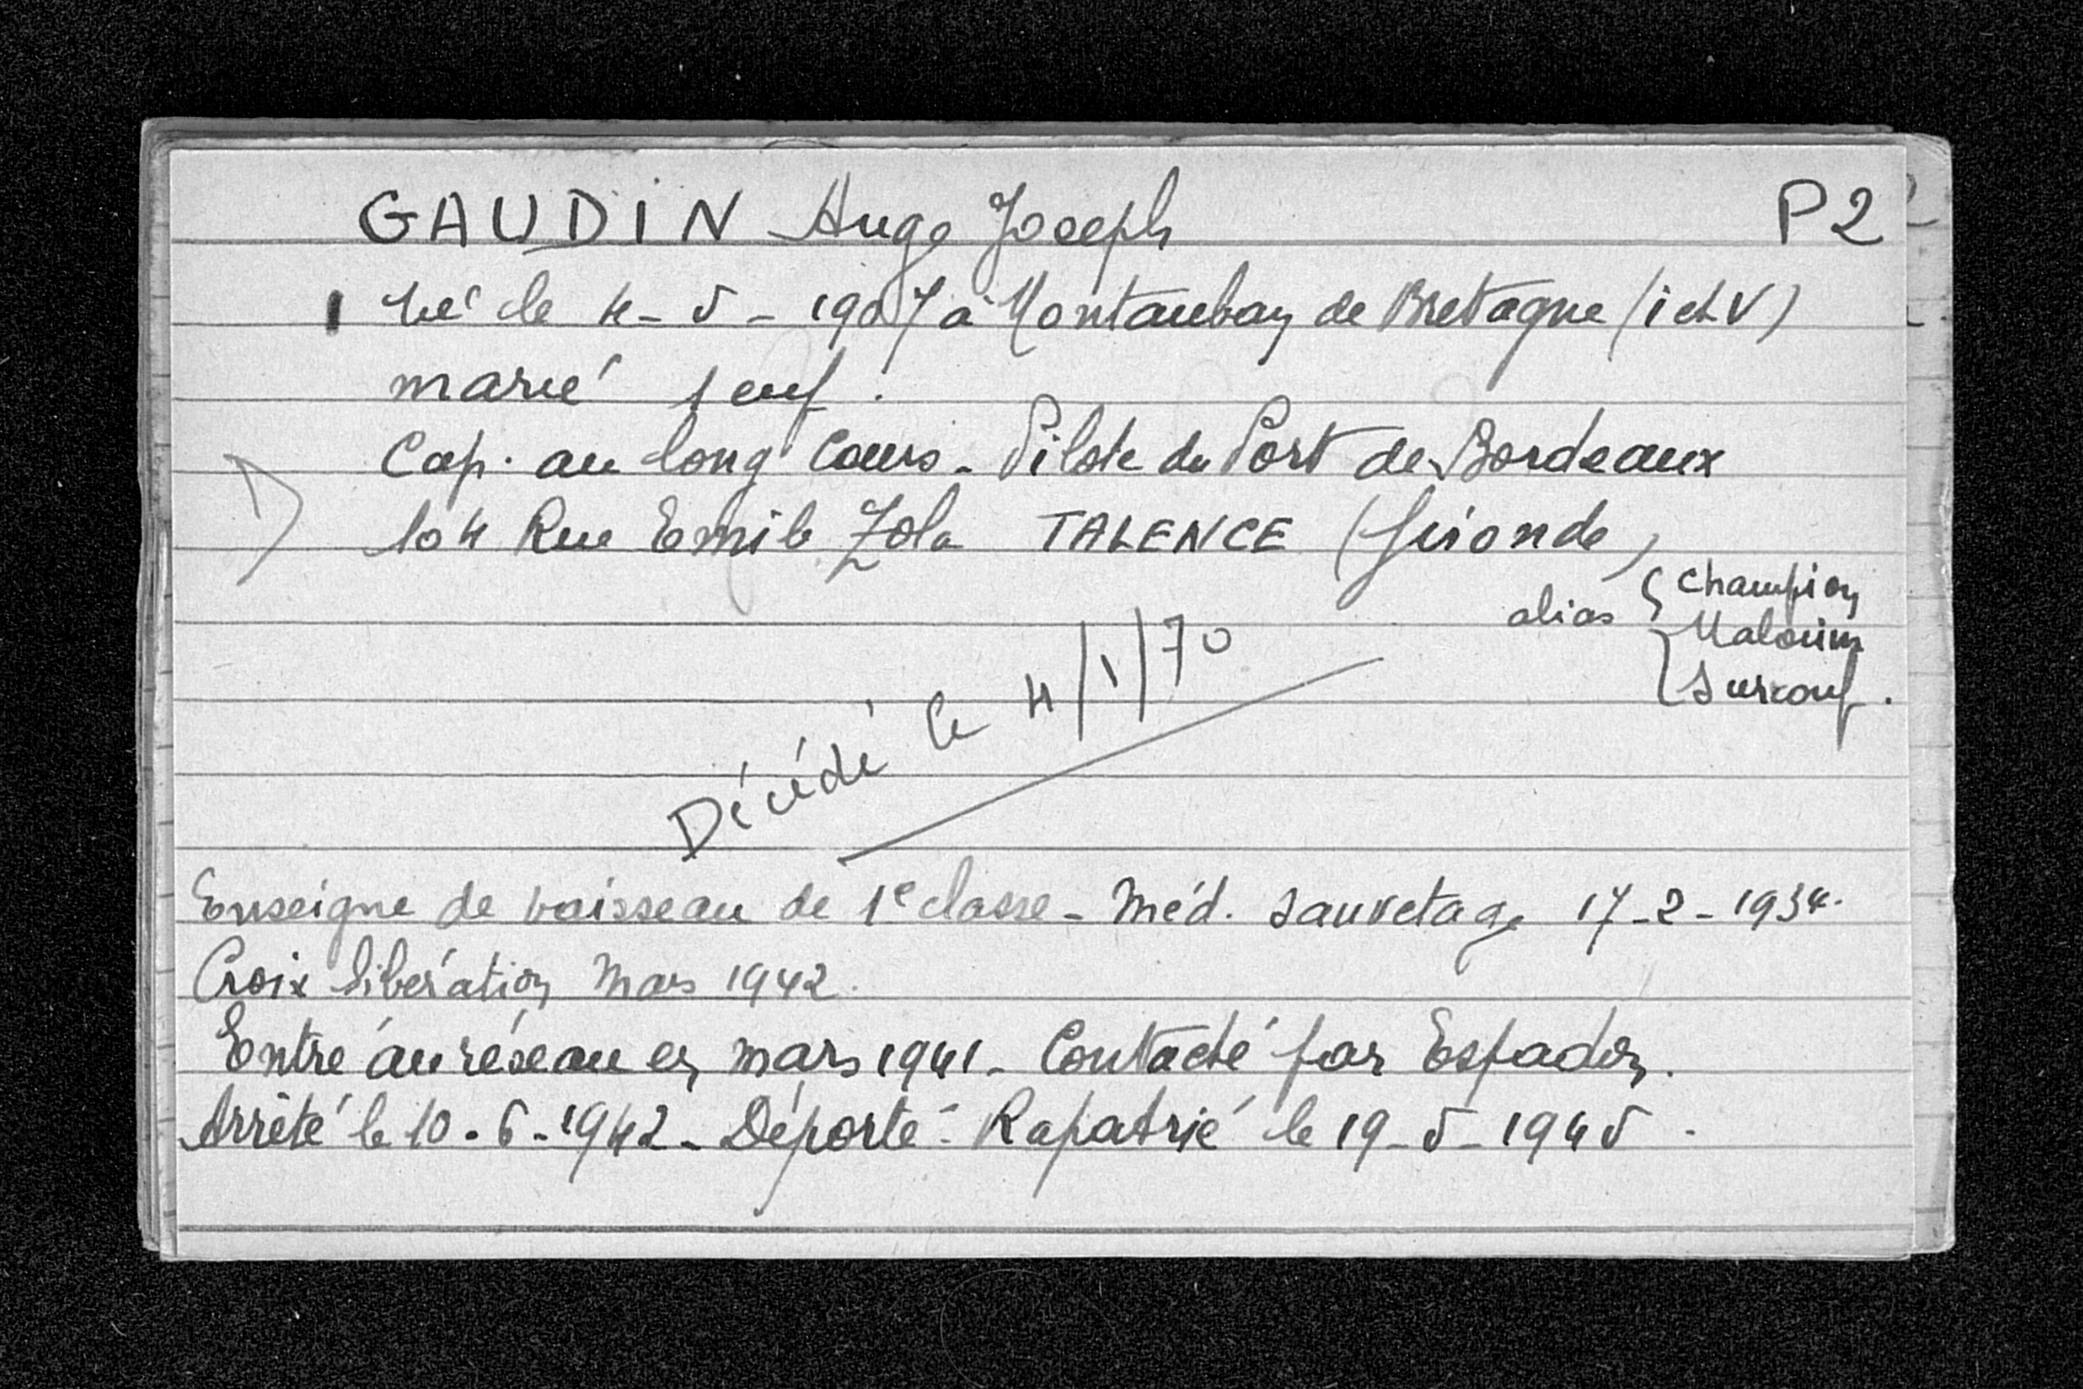 GAUDIN Hugo Joseph P2
né le 4-5-1907 à Montauban de Bretagne (i et V)
marié 1 enf.
Cap. au long Cours - Pilote du Port de Bordeaux
104 Rue Emile Zola TALENCE (Gironde)
alias { Champion
Malouin
Surcouf.
Décédé le 4/1/70
Enseigne de vaisseau de 1e classe - Méd. Sauvetage 17-2-1934.
Croix libération Mars 1942.
Entré au réseau en mars 1941. Contacté par Espadon.
Arrêté le 10.6-1942 - Déporté - Rapatrié le 19-5-1945.